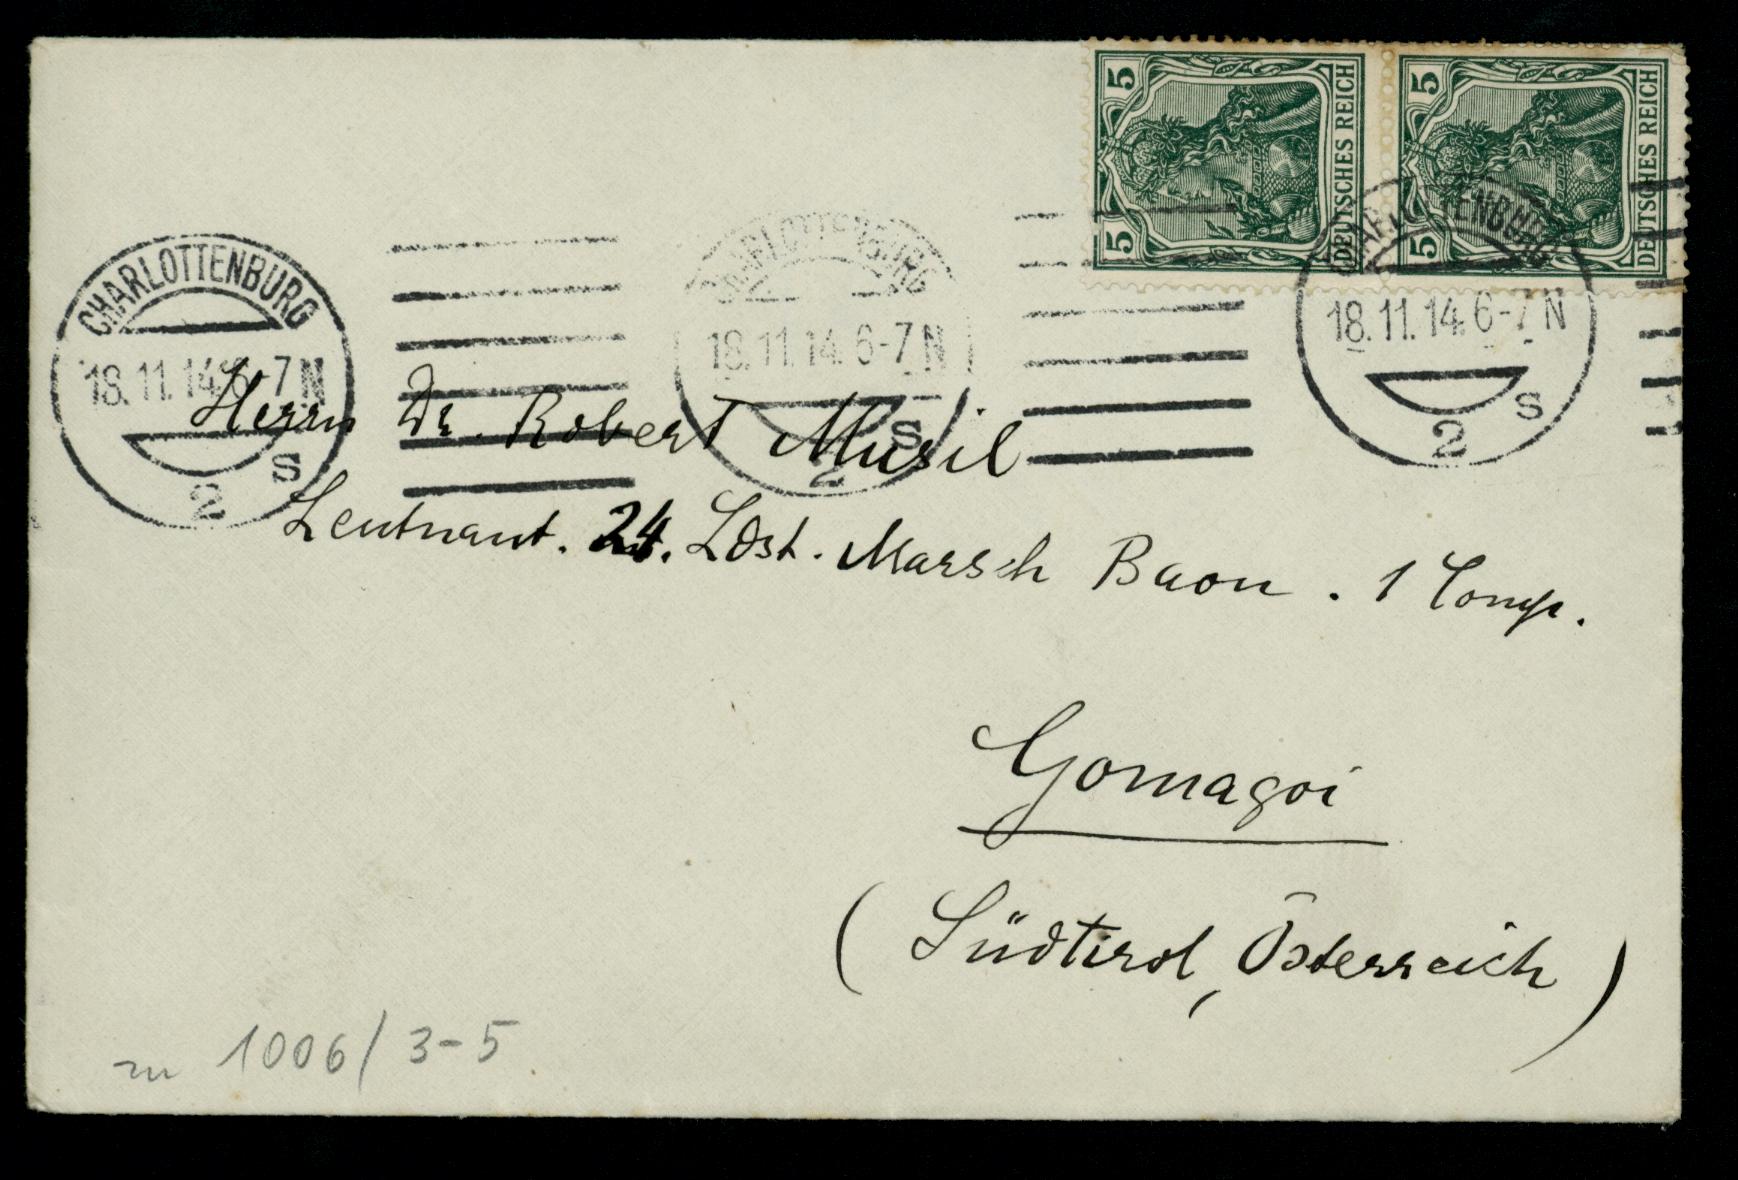 5 5 DEUTSCHES REICH
5 5 DEUTSCHES REICH
CHARLOTTENBURG
18.11.14.6-7N
2 S
CHARLOTTENBURG
18.11.14.6-7N
2 S
CHARLOTTENBURG
18.11.14.6-7N
2 S
Herrn Dr. Robert Musil
Leutnant. 24. Ldst. Marsch Baon. 1 Comp.
Gomagoi
(Südtirol, Österreich)
zu 1006/3-5